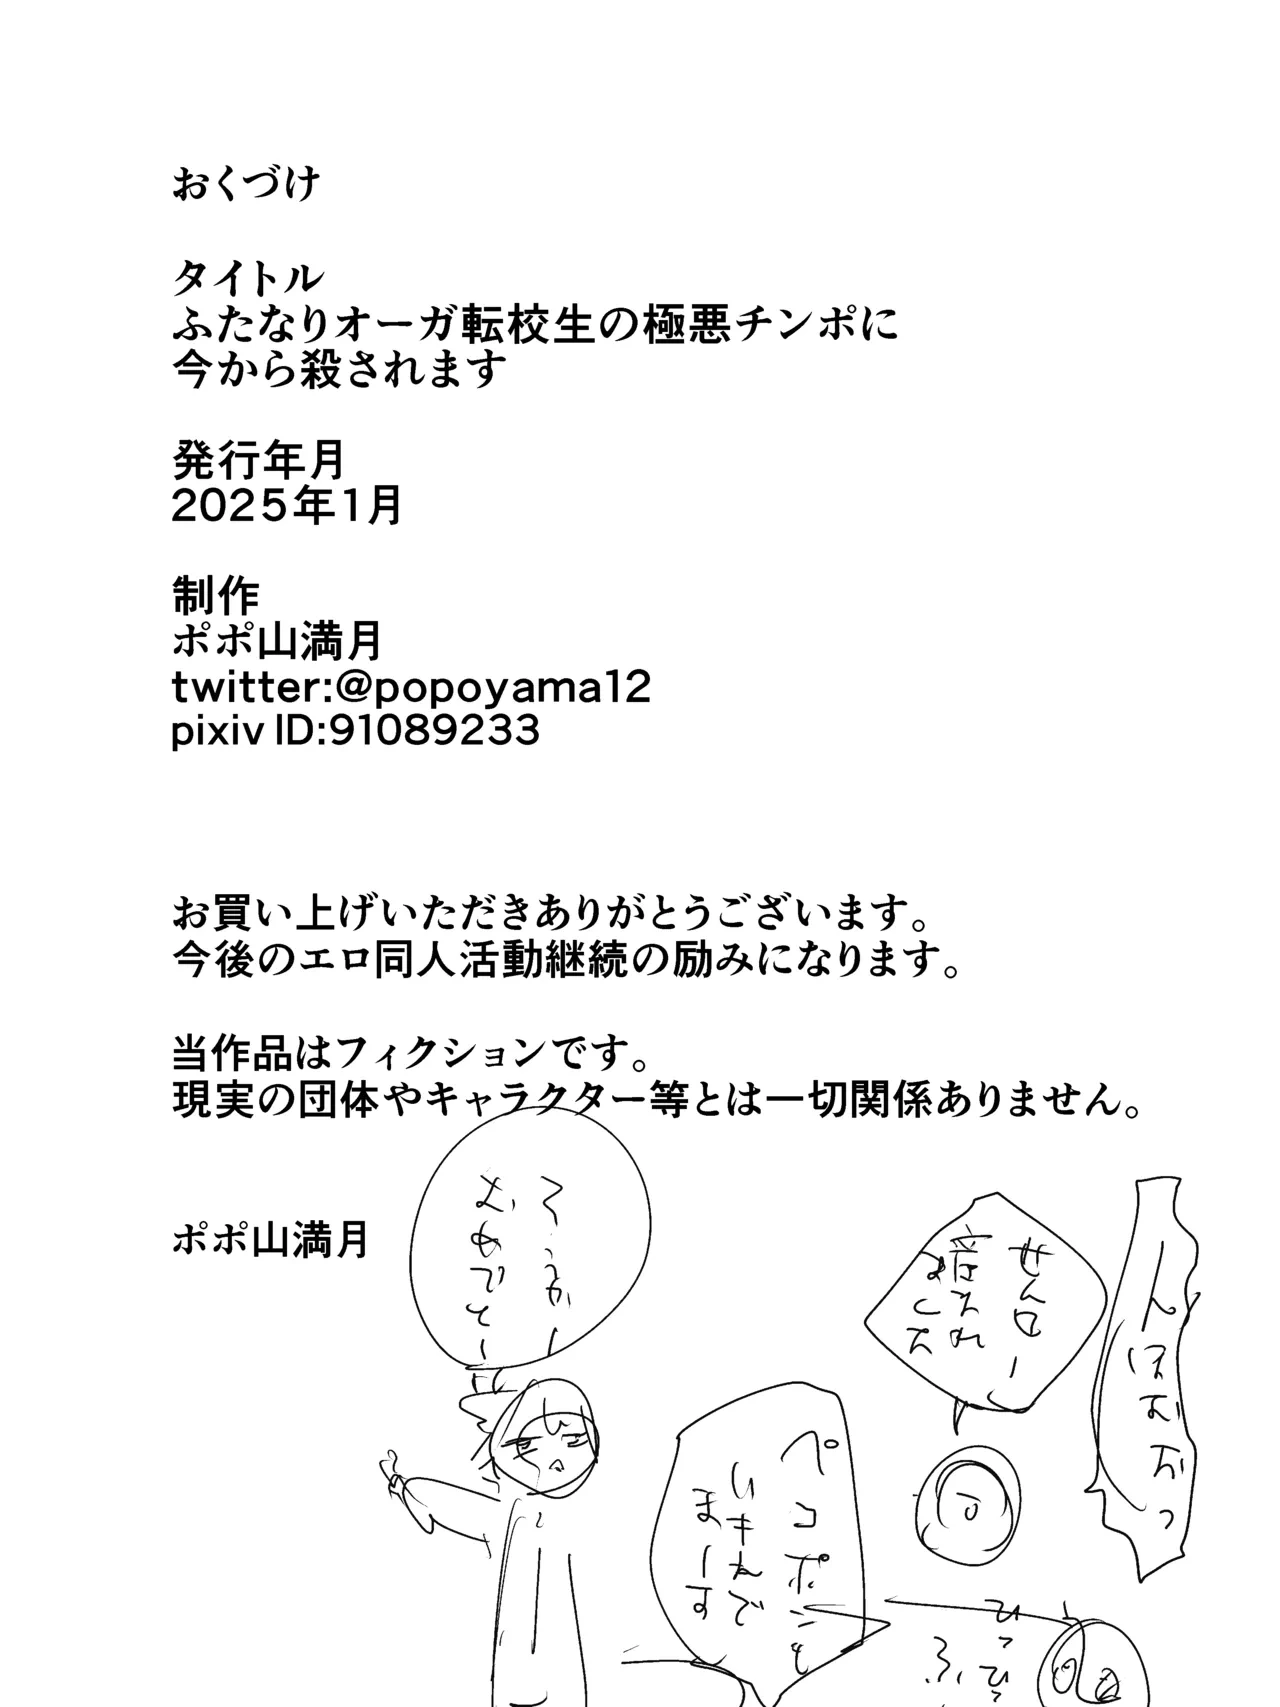 おくづけ
タイトル
ふたなりオーガ転校生の極悪チンポに
今から殺されます
発行年月
2025年1月
制作
ポポ山満月
twitter:@popoyama12
pixiv ID:91089233
お買い上げいただきありがとうございます。
今後のエロ同人活動継続の励みになります。
当作品はフィクションです。
現実の団体やキャラクター等とは一切関係ありません。
ポポ山満月
おめでとー
ペコポン
まーす